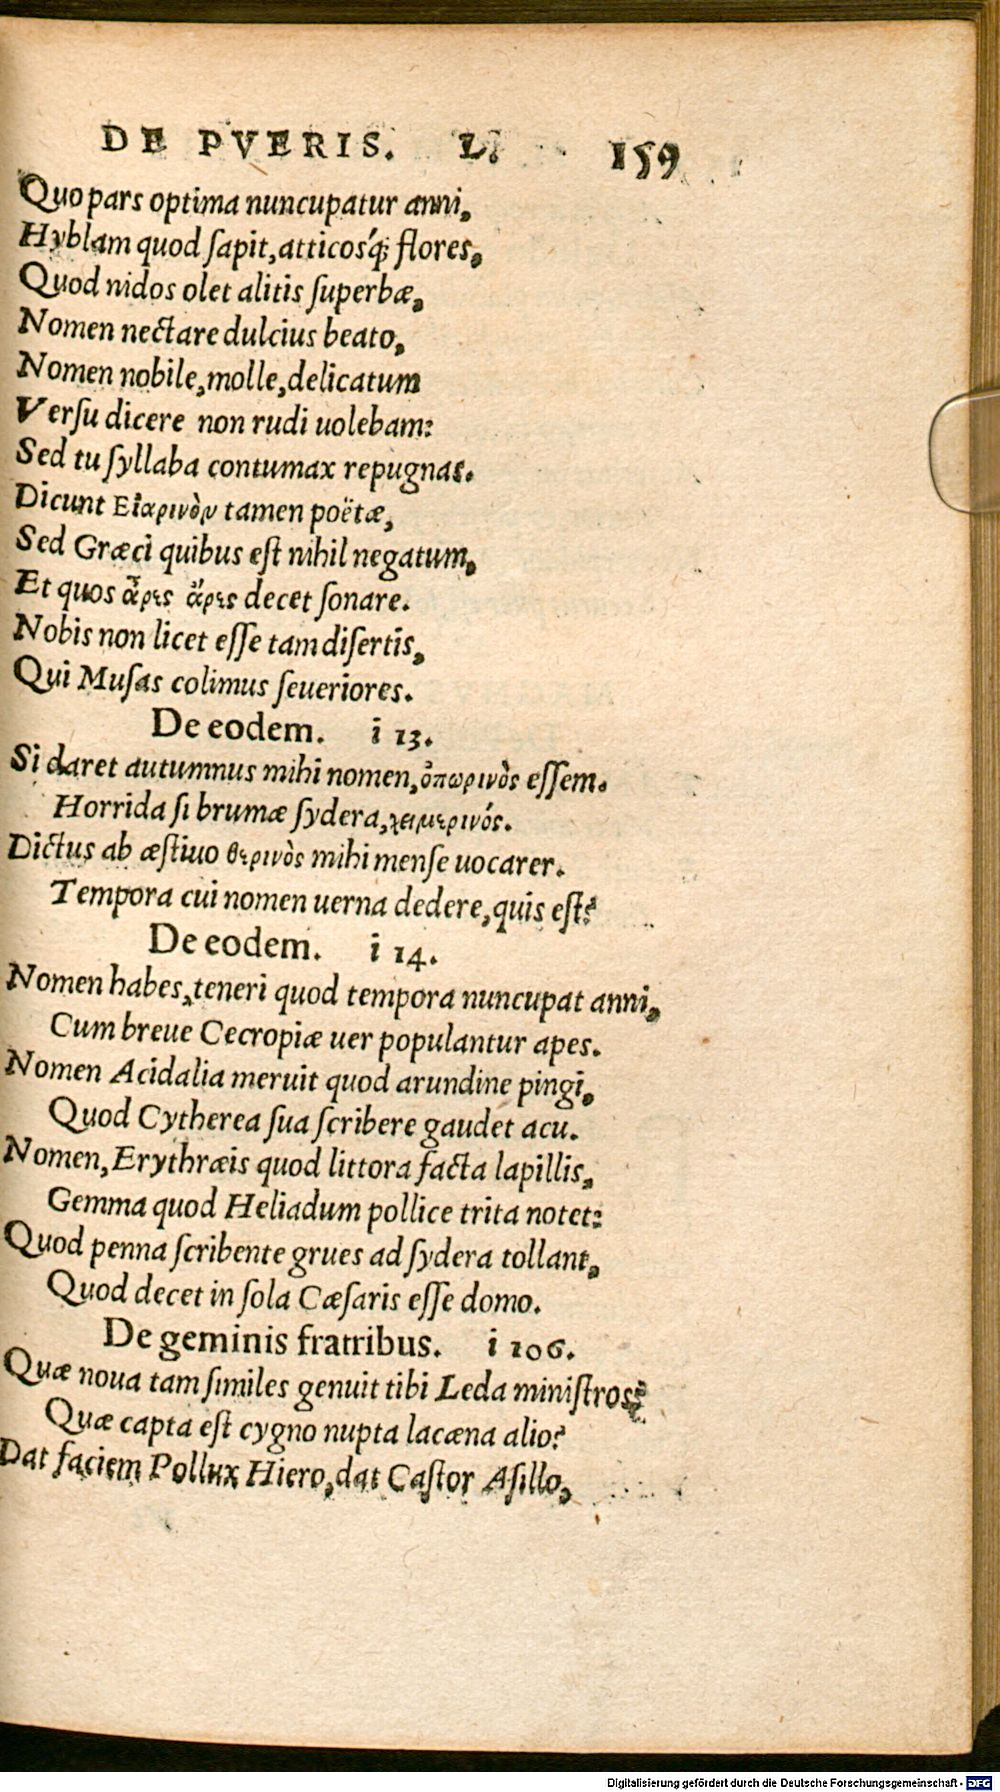 DE PVERIS. L. 159
Quo pars optima nuncupatur anni,
Hyblam quod ſapit, atticosq́; flores,
Quod nidos olet alitis ſuperbæ,
Nomen nectare dulcius beato,
Nomen nobile, molle, delicatum
Verſu dicere non rudi uolebam:
Sed tu ſyllaba contumax repugnas.
Dicunt Εἰαρινὸν tamen poëtæ,
Sed Græci quibus eſt nihil negatum,
Et quos ἆρες ἄρες decet ſonare.
Nobis non licet eſſe tam diſertis,
Qui Muſas colimus ſeueriores.
De eodem. i 13.
Si daret autumnus mihi nomen, ὀπωρινὸς eſſem.
Horrida ſi brumæ ſydera, χειμερινός.
Dictus ab æſtiuo θερινὸς mihi menſe uocarer.
Tempora cui nomen uerna dedere, quis eſt?
De eodem. i 14.
Nomen habes, teneri quod tempora nuncupat anni,
Cum breue Cecropiæ uer populantur apes.
Nomen Acidalia meruit quod arundine pingi,
Quod Cytherea ſua ſcribere gaudet acu.
Nomen, Erythræis quod littora facta lapillis,
Gemma quod Heliadum pollice trita notet:
Quod penna ſcribente grues ad ſydera tollant,
Quod decet in ſola Cæſaris eſſe domo.
De geminis fratribus. i 106.
Quæ noua tam ſimiles genuit tibi Leda miniſtros?
Quæ capta eſt cygno nupta lacæna alio?
Dat faciem Pollux Hiero, dat Caſtor Aſillo,
Digitalisierung gefördert durch die Deutsche Forschungsgemeinschaft - DFG